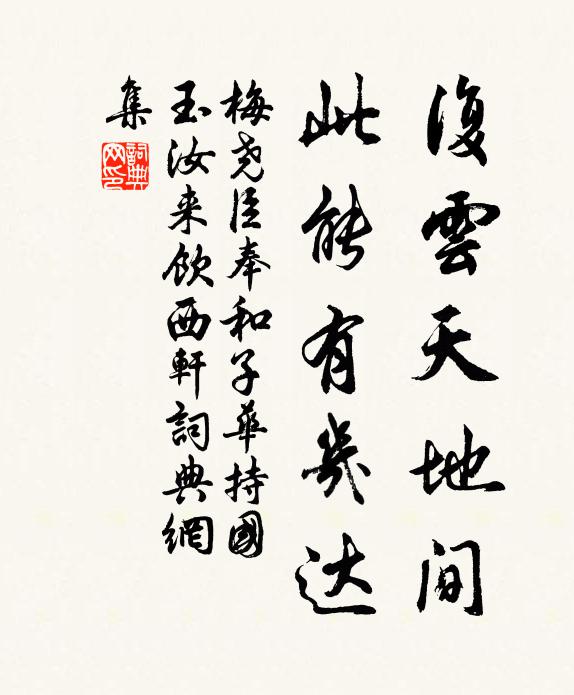 復雲天地间
此能有幾达
梅尧臣奉和子華持國
玉汝来飲西軒詞典網
集
詞典
网印